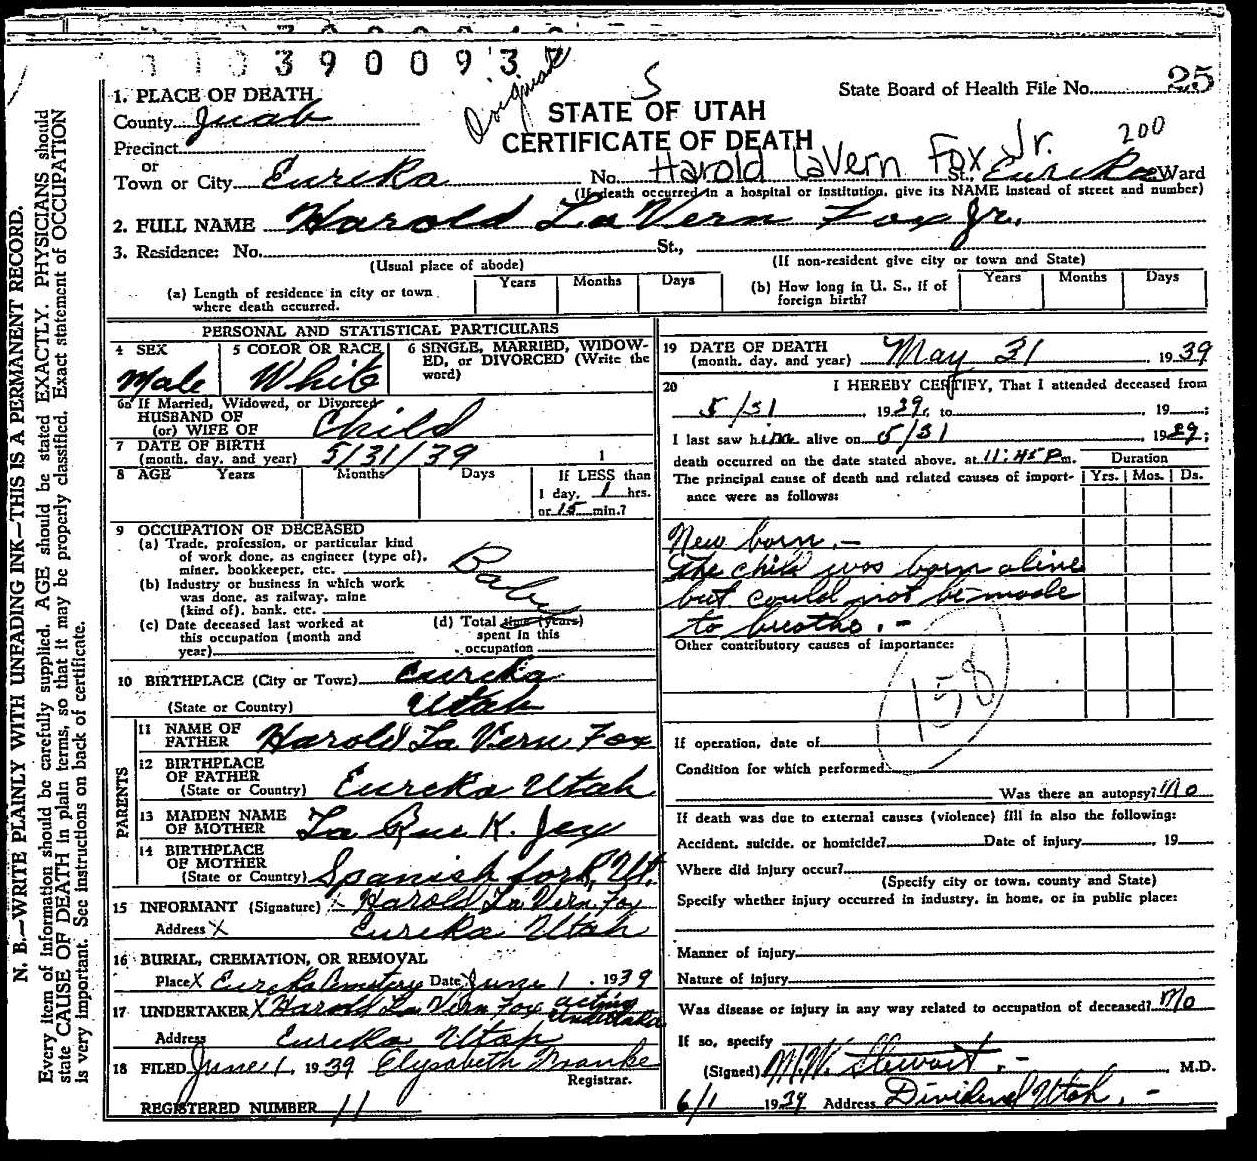 3 9 0 0 9 3
Original
S
State Board of Health File No. 25
1. PLACE OF DEATH
STATE OF UTAH
County Juab
CERTIFICATE OF DEATH
200
Precinct
or
Town or City Eureka No. Harold LaVern Fox Jr. St. Eureka Ward
(If death occurred in a hospital or institution, give its NAME instead of street and number)
2. FULL NAME Harold LaVern Fox Jr.
3. Residence: No. St.,
(Usual place of abode) (If non-resident give city or town and State)
(a) Length of residence in city or town where death occurred. Years Months Days
(b) How long in U. S., if of foreign birth? Years Months Days
PERSONAL AND STATISTICAL PARTICULARS
4 SEX
Male
5 COLOR OR RACE
White
6 SINGLE, MARRIED, WIDOW-
ED, or DIVORCED (Write the
word)
6a If Married, Widowed, or Divorced
HUSBAND OF
(or) WIFE OF Child
7 DATE OF BIRTH
(month, day, and year) 5/31/39
8 AGE Years Months Days If LESS than
1 day, 1 hrs.
or 15 min.?
9 OCCUPATION OF DECEASED
(a) Trade, profession, or particular kind
of work done, as engineer (type of),
miner, bookkeeper, etc. Baby
(b) Industry or business in which work
was done, as railway, mine
(kind of), bank, etc.
(c) Date deceased last worked at
this occupation (month and
year)
(d) Total time (years)
spent in this
occupation
10 BIRTHPLACE (City or Town) Eureka
(State or Country) Utah
PARENTS
11 NAME OF
FATHER Harold La Vern Fox
12 BIRTHPLACE
OF FATHER
(State or Country) Eureka Utah
13 MAIDEN NAME
OF MOTHER La Rue K. Jex
14 BIRTHPLACE
OF MOTHER
(State or Country) Spanish fork, Ut.
15 INFORMANT (Signature) x Harold La Vern Fox
Address X Eureka Utah
16 BURIAL, CREMATION, OR REMOVAL
Place X Eureka Cemetery Date June 1, 1939
17 UNDERTAKER X Harold La Vern Fox acting undertaker
Address Eureka Utah
18 FILED June 1, 1939 Elysabeth Franke
Registrar.
REGISTERED NUMBER 11
19 DATE OF DEATH
(month, day, and year) May 31 1939
20 I HEREBY CERTIFY, That I attended deceased from
5/31 1939, to , 19 ;
I last saw him alive on 5/31 1939;
death occurred on the date stated above, at 11:45 P m.
The principal cause of death and related causes of import-
ance were as follows:
Duration
Yrs. Mos. Ds.
New born. -
The child was born alive
but could not be made
to breathe. -
Other contributory causes of importance:
158
If operation, date of
Condition for which performed
Was there an autopsy? No
If death was due to external causes (violence) fill in also the following:
Accident, suicide, or homicide? Date of injury , 19
Where did injury occur?
(Specify city or town, county and State)
Specify whether injury occurred in industry, in home, or in public place:
Manner of injury
Nature of injury
Was disease or injury in any way related to occupation of deceased? No
If so, specify
(Signed) M.W. Stewart. - M.D.
6/1 1939 Address Dividend Utah. -
N. B.—WRITE PLAINLY WITH UNFADING INK—THIS IS A PERMANENT RECORD.
Every item of information should be carefully supplied. AGE should be stated EXACTLY. PHYSICIANS should
state CAUSE OF DEATH in plain terms, so that it may be properly classified. Exact statement of OCCUPATION
is very important. See instructions on back of certificate.